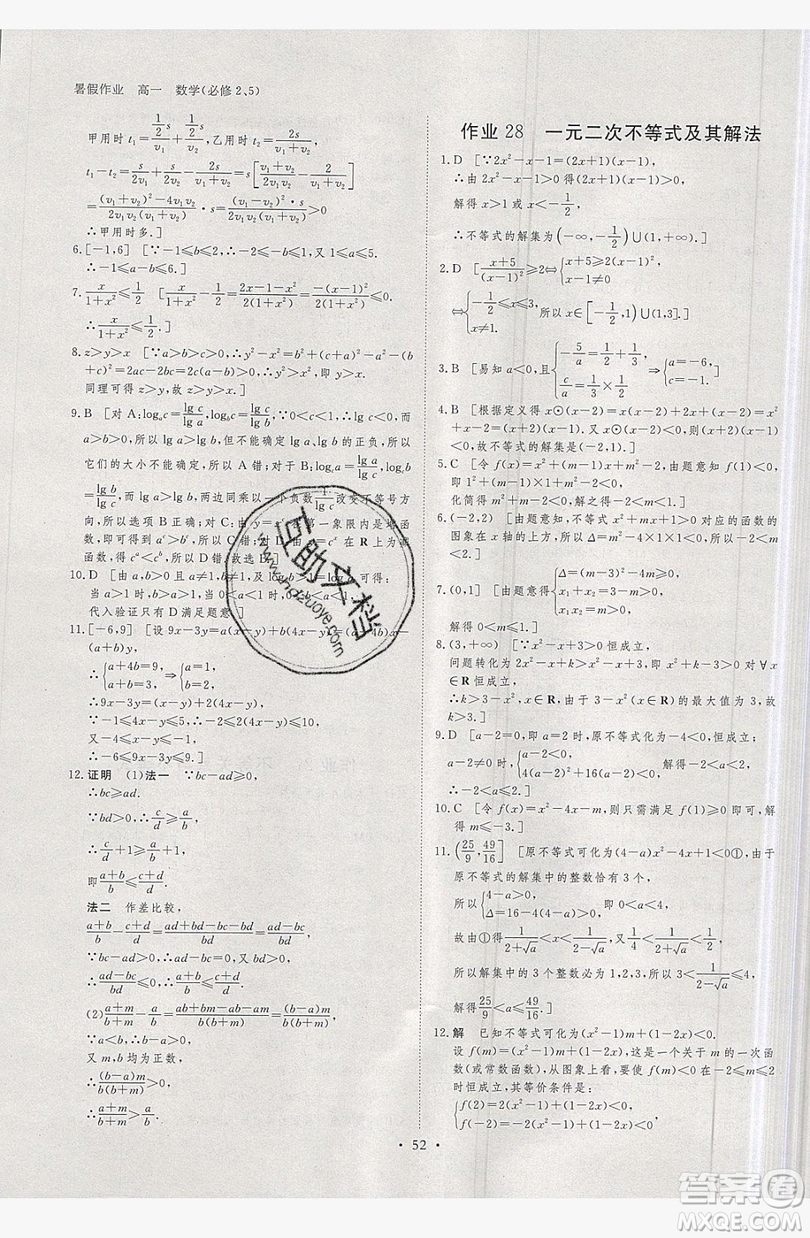 暑假作业 高一 数学(必修2、5)
甲用时t₁=\frac{\frac{1}{2}s}{v₁}+\frac{\frac{1}{2}s}{v₂},乙用时t₂=\frac{2s}{v₁+v₂},
t₁-t₂=\frac{s}{2v₁}+\frac{s}{2v₂}-\frac{2s}{v₁+v₂}=s[\frac{v₁+v₂}{2v₁v₂}-\frac{2}{v₁+v₂}]
=\frac{(v₁+v₂)²-4v₁v₂}{2v₁v₂(v₁+v₂)}·s=\frac{(v₁-v₂)²·s}{2v₁v₂(v₁+v₂)}>0
∴甲用时多.]
6.[-1,6] [∵-2≤-b≤-1,1≤a≤8,
∴-1≤a-b≤6.]
7.\frac{x}{1+x²}≤\frac{1}{2} [∵\frac{x}{1+x²}-\frac{1}{2}=\frac{2x-1-x²}{2(1+x²)}=\frac{-(x-1)²}{2(1+x²)}≤0,
∴\frac{x}{1+x²}≤\frac{1}{2}.]
8.z>y>x [∵a>b>c>0,y²-x²=b²+(c+a)²-a²-(b
+c)²=2ac-2bc=2c(a-b)>0,∴y²>x²,即y>x.
同理可得z>y,故z>y>x.]
9.B [对A:logₐc=\frac{lg c}{lg a},log_b c=\frac{lg c}{lg b},∵0<c<1,∴lg c<0,而
a>b>0,所以lg a>lg b,但不能确定lg a、lg b的正负,所以
它们的大小不能确定,所以A错;对B:log_c a=\frac{lg a}{lg c},log_c b=
\frac{lg b}{lg c},而lg a>lg b,两边同乘以一个负数\frac{1}{lg c}改变不等号方
向,所以选项B正确;对C:由y=第一象限内是增函
数,即可得到aᶜ>bᶜ,所以C错;对D:y=cˣ在R上为减
函数,所以cᵃ<cᵇ,所以D错.故选B.]
10.D [由a>0,b>0且a≠1,b≠1,及logₐb>1=logₐa可得:
当a>1时,b>a>1,当0<a<1时,0<b<a<1,
代入验证只有D满足题意.]
11.[-6,9] [设9x-3y=a(x-y)+b(4x-y)=(a+4b)x
-(a+b)y,
∴{a+4b=9, a+b=3⇒{a=1, b=2,
∴9x-3y=(x-y)+2(4x-y),
∵-1≤4x-y≤5,∴-2≤2(4x-y)≤10,
又-4≤x-y≤-1,
∴-6≤9x-3y≤9.]
12.证明 (1)法一 ∵bc-ad≥0,
∴bc≥ad.
∵bd>0,∴两边同除以bd得,
∴\frac{c}{d}≥\frac{a}{b},∴\frac{c}{d}+1≥\frac{a}{b}+1,
即\frac{a+b}{b}≤\frac{c+d}{d}.
法二 作差比较,
\frac{a+b}{b}-\frac{c+d}{d}=\frac{ad+bd-bc-bd}{bd}=\frac{ad-bc}{bd},
∵bc-ad≥0,∴ad-bc≤0,
又bd>0,∴\frac{ad-bc}{bd}≤0,即\frac{a+b}{b}≤\frac{c+d}{d}.
(2)\frac{a+m}{b+m}-\frac{a}{b}=\frac{ab+bm-ab-am}{b(b+m)}=\frac{(b-a)m}{b(b+m)}.
∵b>a,∴b-a>0,
又m,b均为正数,
∴\frac{(b-a)m}{b(b+m)}>0,
∴\frac{a+m}{b+m}>\frac{a}{b}.
作业28 一元二次不等式及其解法
1.D [∵2x²-x-1=(2x+1)(x-1),
∴由2x²-x-1>0得(2x+1)(x-1)>0,
解得x>1或x<-\frac{1}{2},
∴不等式的解集为(-∞,-\frac{1}{2})∪(1,+∞).]
2.D [\frac{x+5}{(x-1)²}≥2⇔{x+5≥2(x-1)², x-1≠0
⇔{-\frac{1}{2}≤x≤3, x≠1. 所以x∈[-\frac{1}{2},1)∪(1,3].]
3.B [易知a<0,且{-\frac{5}{a}=\frac{1}{2}+\frac{1}{3}, \frac{c}{a}=\frac{1}{2}×\frac{1}{3}⇒{a=-6, c=-1.]
4.B [根据定义得x⊙(x-2)=x(x-2)+2x+(x-2)=x²
+x-2<0,解得-2<x<1,所以所求的实数x的取值
范围为(-2,1).]
5.C [令f(x)=x²+mx+m²+6m,由题意知f(0)<0,
化简得m²+6m<0,解之得-6<m<0.]
6.(-2,2) [由题意知,不等式x²+mx+1>0对应的函数的
图象在x轴的上方,所以Δ=m²-4×1×1<0,
∴-2<m<2.]
7.(0,1) [由题意得{x₁+x₂=-\frac{2(m-1)}{m}>0, x₁x₂=\frac{m-1}{m}<0,⇒0<m<1.]
8.(3,+∞) [∵x²-x+1>0恒成立,
问题转化为2x²-x+k>x²-x+3对∀x
∈R恒成立,
∴k>3-x²(x∈R)恒成立,
∴k>3.]
9.D [∵a=2时,原不等式为-4<0,所以a=2时成立;
当a≠2时,由题意得{a-2<0, 4(a-2)²+16(a-2)<0,即-2<a<2.
综上所述,-2<a≤2.]
10.C [令f(x)=x²-4x-m,则只需满足f(1)≥0即可,解
得m≤-3.]
11.(\frac{25}{9},\frac{49}{16}] [原不等式可化为(4-a)x²-4x+1<0①,由于
原不等式的解集中的整数恰有2个,
所以{4-a>0, Δ=16-4(4-a)>0,解得0<a<4,
故由①得\frac{1}{2+\sqrt{a}}<x<\frac{1}{2-\sqrt{a}},又\frac{1}{4}<\frac{1}{2+\sqrt{a}}<\frac{1}{2},
所以解集中的整数必为1,2,所以2<\frac{1}{2-\sqrt{a}}≤3,
解得\frac{25}{9}<a≤\frac{49}{16}.]
12.解 已知不等式可化为(x²-1)m+(1-2x)<0.
设f(m)=(x²-1)m+(1-2x),这是一个关于m的一次函
数(或常数函数),从图象上看,要使f(m)<0在-2≤m≤2
时恒成立,其等价条件是:
{f(2)=2(x²-1)+(1-2x)<0, f(-2)=-2(x²-1)+(1-2x)<0,
• 52 •
互助文档
答案圈
MXQE.COM